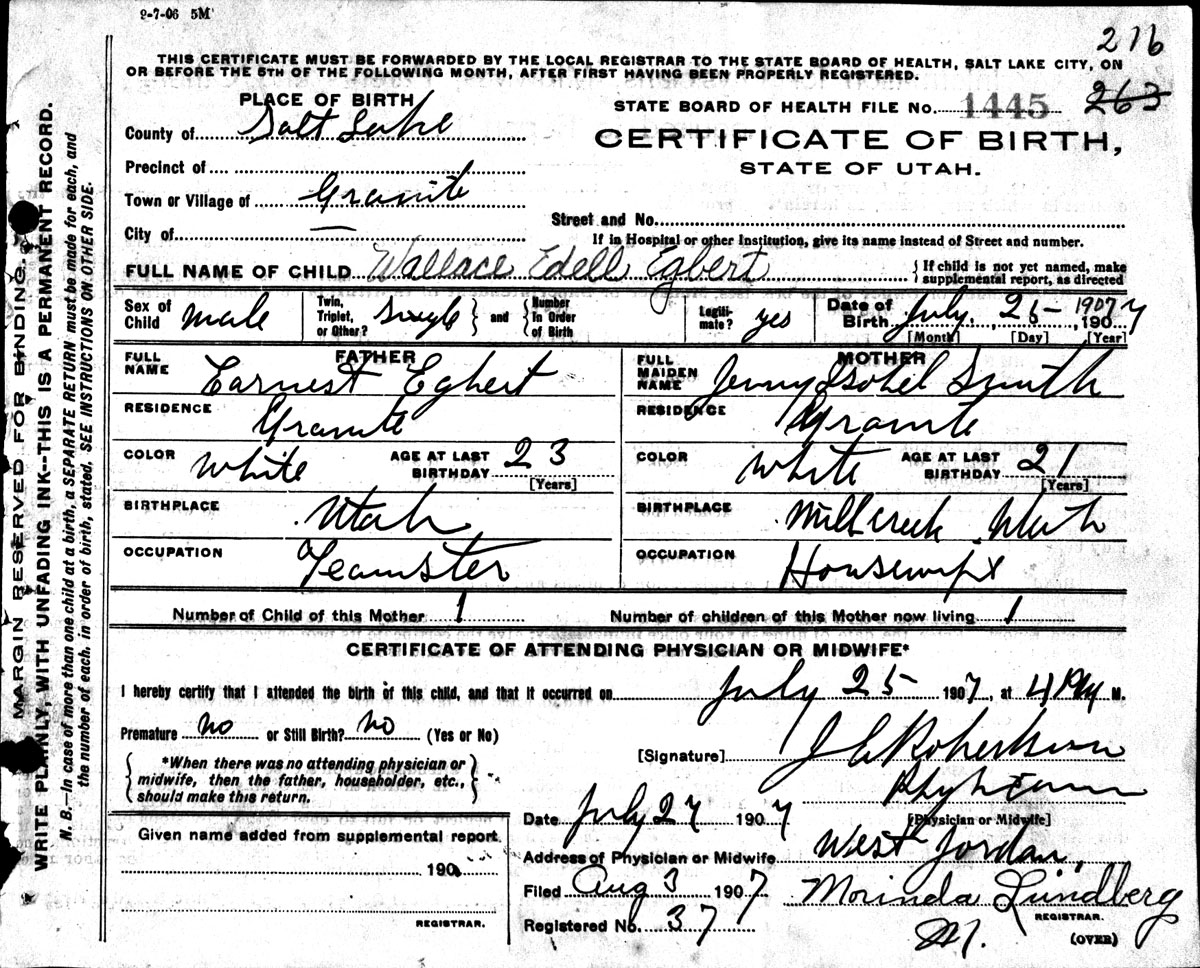 9-7-06 5M
216
THIS CERTIFICATE MUST BE FORWARDED BY THE LOCAL REGISTRAR TO THE STATE BOARD OF HEALTH, SALT LAKE CITY, ON
OR BEFORE THE 5TH OF THE FOLLOWING MONTH, AFTER FIRST HAVING BEEN PROPERLY REGISTERED.
PLACE OF BIRTH
STATE BOARD OF HEALTH FILE No. 1445 263
County of Salt Lake
CERTIFICATE OF BIRTH,
STATE OF UTAH.
Precinct of
Town or Village of Granite
Street and No.
City of —
If in Hospital or other Institution, give its name instead of Street and number.
FULL NAME OF CHILD Wallace Edell Egbert { If child is not yet named, make
supplemental report, as directed
Sex of Child male Twin, Triplet, or Other? single } and { Number In Order of Birth Legiti-mate? yes Date of Birth July 25 1907 1907
[Month] [Day] [Year]
FATHER
FULL NAME Earnest Egbert
MOTHER
FULL MAIDEN NAME Jenny Isobel Smith
RESIDENCE Granite
RESIDENCE Granite
COLOR White AGE AT LAST BIRTHDAY 23 [Years]
COLOR White AGE AT LAST BIRTHDAY 21 [Years]
BIRTHPLACE Utah
BIRTHPLACE Mill creek Utah
OCCUPATION Teamster
OCCUPATION Housewife
Number of Child of this Mother 1 Number of children of this Mother now living 1
CERTIFICATE OF ATTENDING PHYSICIAN OR MIDWIFE*
I hereby certify that I attended the birth of this child, and that it occurred on July 25 1907, at 4 PM M.
Premature no or Still Birth? no (Yes or No)
[Signature] J C Robertson
Physician
[Physician or Midwife]
{ *When there was no attending physician or
midwife, then the father, householder, etc.,
should make this return. }
Date July 27 1907
Address of Physician or Midwife West Jordan,
Given name added from supplemental report
190
REGISTRAR.
Filed Aug 3 1907 Morinda Lundberg
REGISTRAR.
Registered No. 37 M.
(OVER)
MARGIN RESERVED FOR BINDING.
WRITE PLAINLY, WITH UNFADING INK--THIS IS A PERMANENT RECORD.
N. B.—In case of more than one child at a birth, a SEPARATE RETURN must be made for each, and
the number of each, in order of birth, stated. SEE INSTRUCTIONS ON OTHER SIDE.